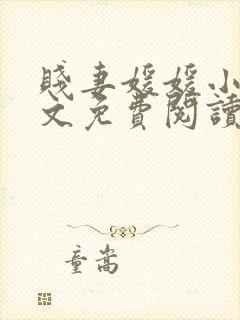 賤妻媛媛小
文免費閱讀
童嵩